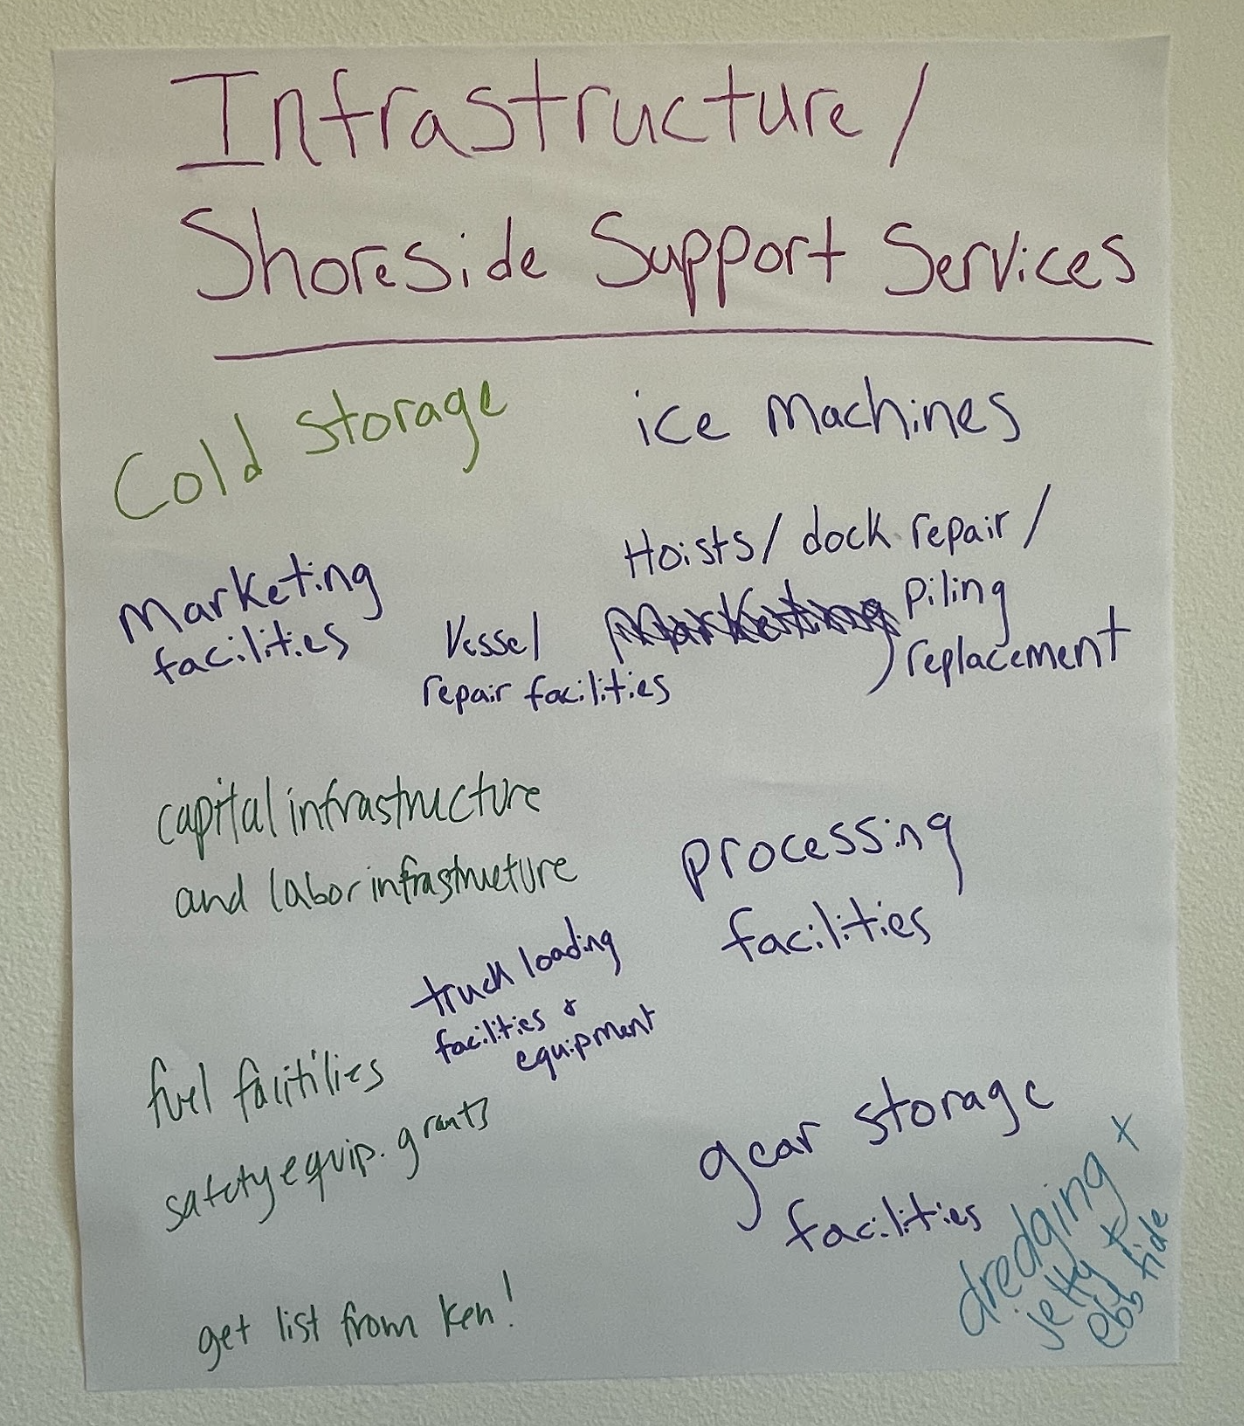 Infrastructure /
Shoreside Support Services
Cold storage
ice machines
Hoists / dock repair /
Piling
replacement
Marketing
facilities
Vessel
repair facilities
capital infrastructure
and labor infrastructure
processing
facilities
truck loading
facilities &
equipment
fuel facitilies
safety equip. grants
gear storage
facilities
dredging +
jetty +
ebb tide
get list from Ken!